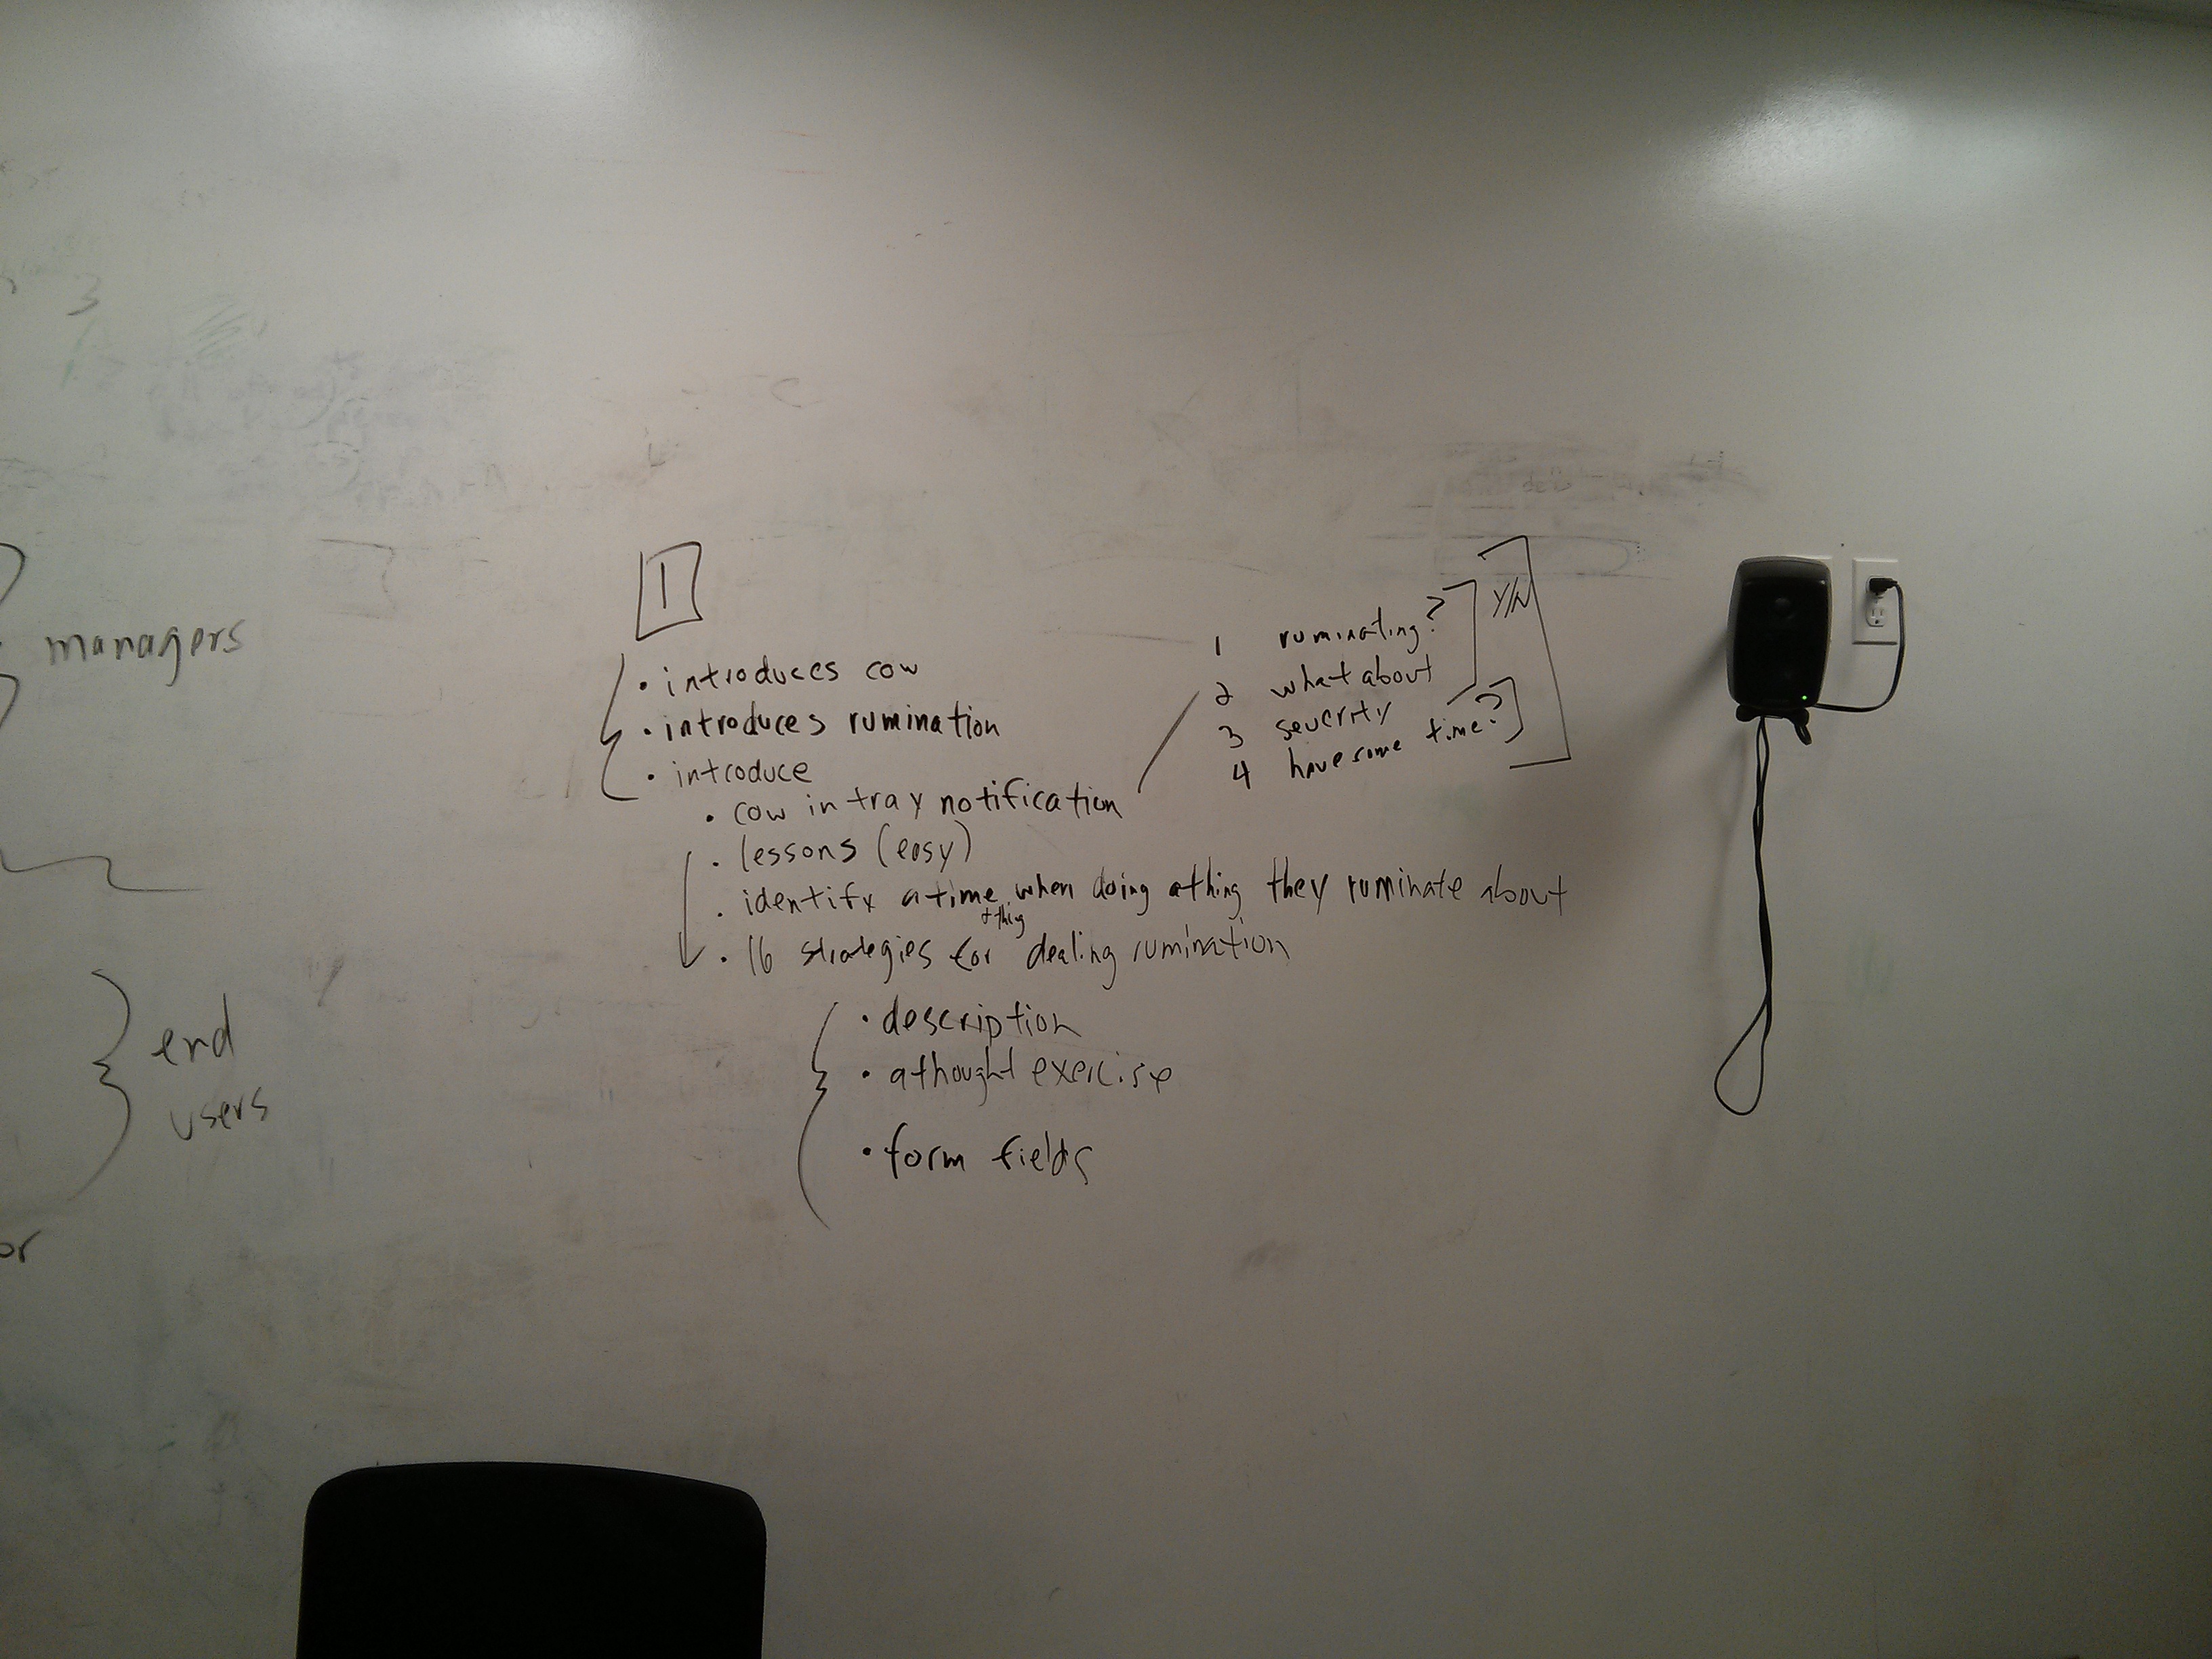 3
managers
end
users
or
1
• introduces cow
• introduces rumination
• introduce
• cow in tray notification
• lessons (easy)
• identify a time when doing a thing they ruminate about
+ thing
• 16 strategies for dealing rumination
• description
• a thought exercise
• form fields
1 ruminating?
2 what about
3 severity
4 have some time?
Y/N